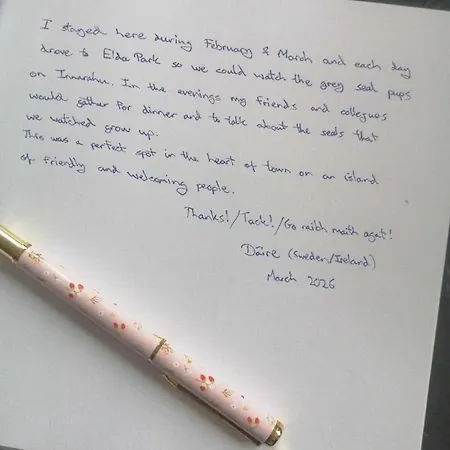 I stayed here during February & March and each day
drove to Elda Park so we could watch the grey seal pups
on Innarahu. In the evenings my friends and collegues
would gather for dinner and to talk about the seals that
we watched grow up.
This was a perfect spot in the heart of town on an island
of friendly and welcoming people.
Thanks!/Tack!/Go raibh maith agat!
Dáire (Sweden/Ireland)
March 2026